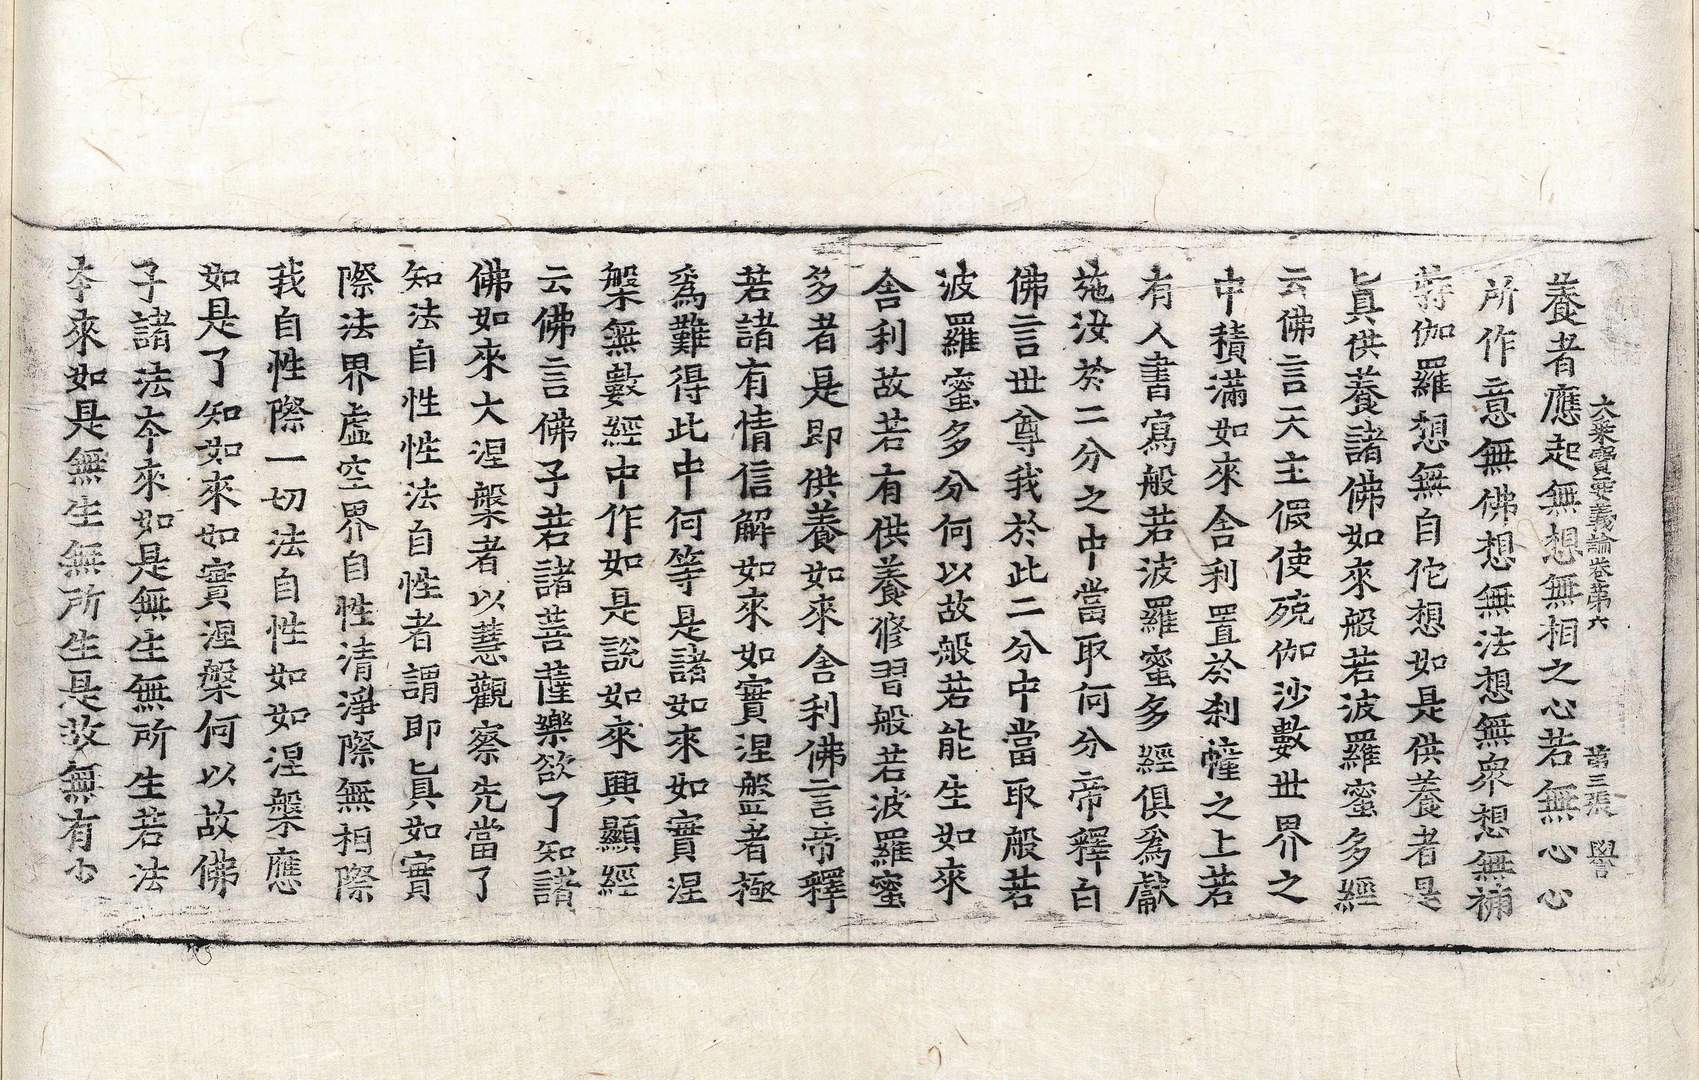 大乘寶要義論卷第六 第三張 譽
養者應起無想無相之心若無心心
所作意無佛想無法想無衆想無補
特伽羅想無自佗想如是供養者是
眞供養諸佛如來般若波羅蜜多經
云佛言天主假使殑伽沙數世界之
中積滿如來舍利置於刹幢之上若
有人書寫般若波羅蜜多經俱爲獻
施汝於二分之中當取何分帝釋白
佛言世尊我於此二分中當取般若
波羅蜜多分何以故般若能生如來
舍利故若有供養修習般若波羅蜜
多者是即供養如來舍利佛言帝釋
若諸有情信解如來如實涅盤者極
爲難得此中何等是諸如來如實涅
槃無數經中作如是說如來興顯經
云佛言佛子若諸菩薩樂欲了知諸
佛如來大涅槃者以慧觀察先當了
知法自性性法自性者謂即眞如實
際法界虛空界自性清淨際無相際
我自性際一切法自性如如涅槃應
如是了知如來如實涅槃何以故佛
子諸法夲來如是無生無所生若法
夲來如是無生無所生是故無有少